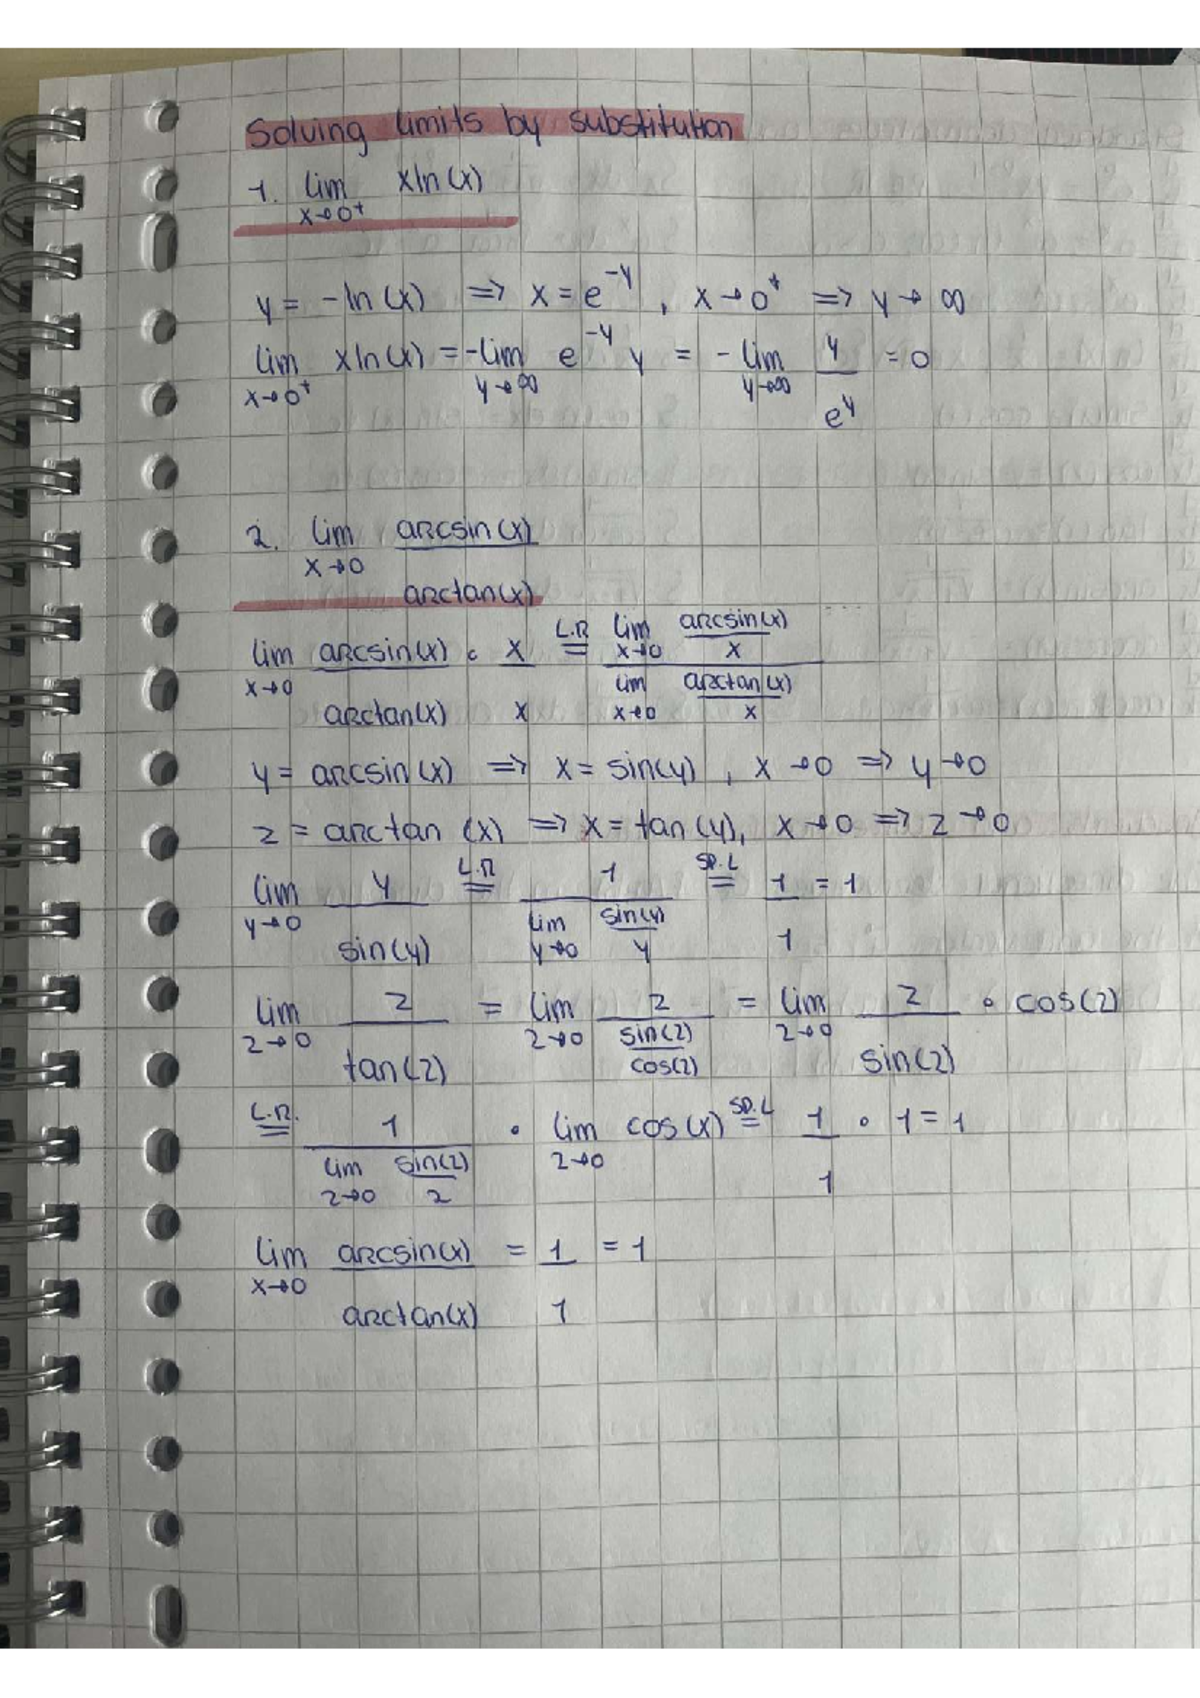 Solving limits by substitution
1. lim x→0⁺ xln(x)
y = -ln(x) => x = e^-y , x→0⁺ => y→∞
lim x→0⁺ xln(x) = -lim y→∞ e^-y y = -lim y→∞ y/e^y = 0
2. lim x→0 arcsin(x)/arctan(x)
lim x→0 arcsin(x)/arctan(x) · x/x =^L.R (lim x→0 arcsin(x)/x)/(lim x→0 arctan(x)/x)
y = arcsin(x) => x = sin(y) , x→0 => y→0
z = arctan (x) => x = tan(y), x→0 => z→0
lim y→0 y/sin(y) =^L.R 1/(lim y→0 sin(y)/y) =^SP.L 1/1 = 1
lim z→0 z/tan(z) = lim z→0 z/(sin(z)/cos(z)) = lim z→0 z/sin(z) · cos(z)
=^L.R. 1/(lim z→0 sin(z)/z) · lim z→0 cos(x) =^SP.L 1/1 · 1 = 1
lim x→0 arcsin(x)/arctan(x) = 1/1 = 1